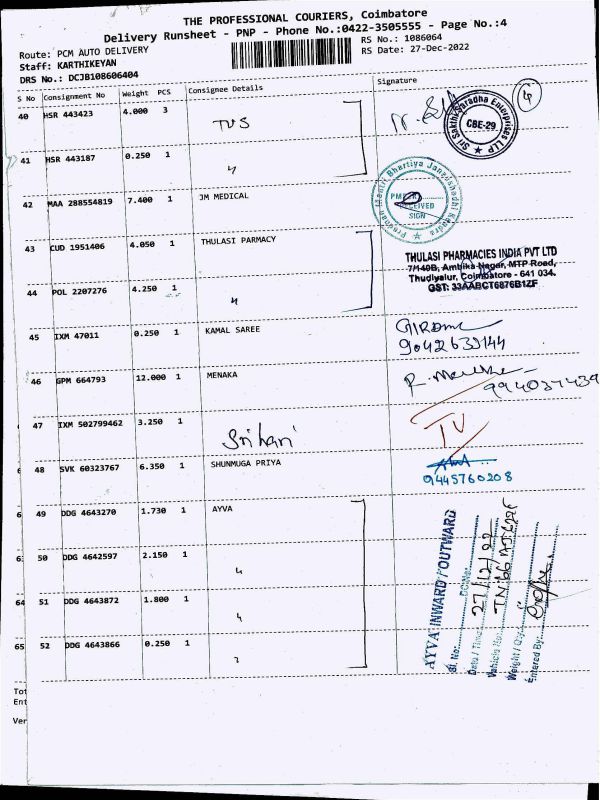 THE PROFESSIONAL COURIERS, Coimbatore
Delivery Runsheet - PNP - Phone No.:0422-3505555 - Page No.:4
Route: PCM AUTO DELIVERY
RS No.: 1086064
Staff: KARTHIKEYAN
RS Date: 27-Dec-2022
DRS No.: DCJB108606404
S No Consignment No Weight PCS Consignee Details Signature
40 HSR 443423 4.000 3 TVS
Sri Sakthi Saradha Enterprises LLP
CBE-29
4
41 HSR 443187 0.250 1 "
42 MAA 288554819 7.400 1 JM MEDICAL
Pradhan Mantri Bhartiya Janaushadhi Kendra
RECEIVED
SIGN
43 CUD 1951406 4.050 1 THULASI PARMACY
THULASI PHARMACIES INDIA PVT LTD
7/140B, Ambika Nagar, MTP Road,
Thudiyalur, Coimbatore - 641 034.
GST: 33AABCT6876B1ZF
44 POL 2207276 4.250 1 "
45 IXM 47011 0.250 1 KAMAL SAREE
9042639144
46 GPM 664793 12.000 1 MENAKA
47 IXM 502799462 3.250 1 Srihari
TV
48 SVK 60323767 6.350 1 SHUNMUGA PRIYA
9445760208
49 DDG 4643270 1.730 1 AYVA
50 DDG 4642597 2.150 1 "
51 DDG 4643872 1.800 1 "
52 DDG 4643866 0.250 1 "
AYVA INWARD / OUTWARD
Sl. No: DC.No:
Date / Time: 27/12/22
Vehicle No:
Weight / Qty:
Entered By:
6
6
6
63
64
65
Tot
Ent
Ver